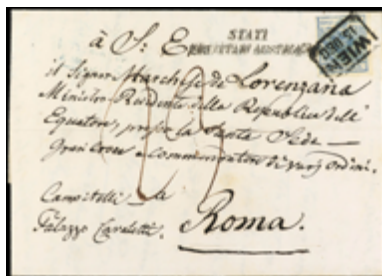 STATI
EREDITARI AUSTRIACI
WIEN
15. DEC.
à S: E
il Signor Marchese de Lorenzana
Ministro Residente della Republica dell'
Equatore, presso la Santa Sede —
Gran Croce e commendatore di varj ordini.
Campitelli
Palazzo Cavaletti.
Roma.